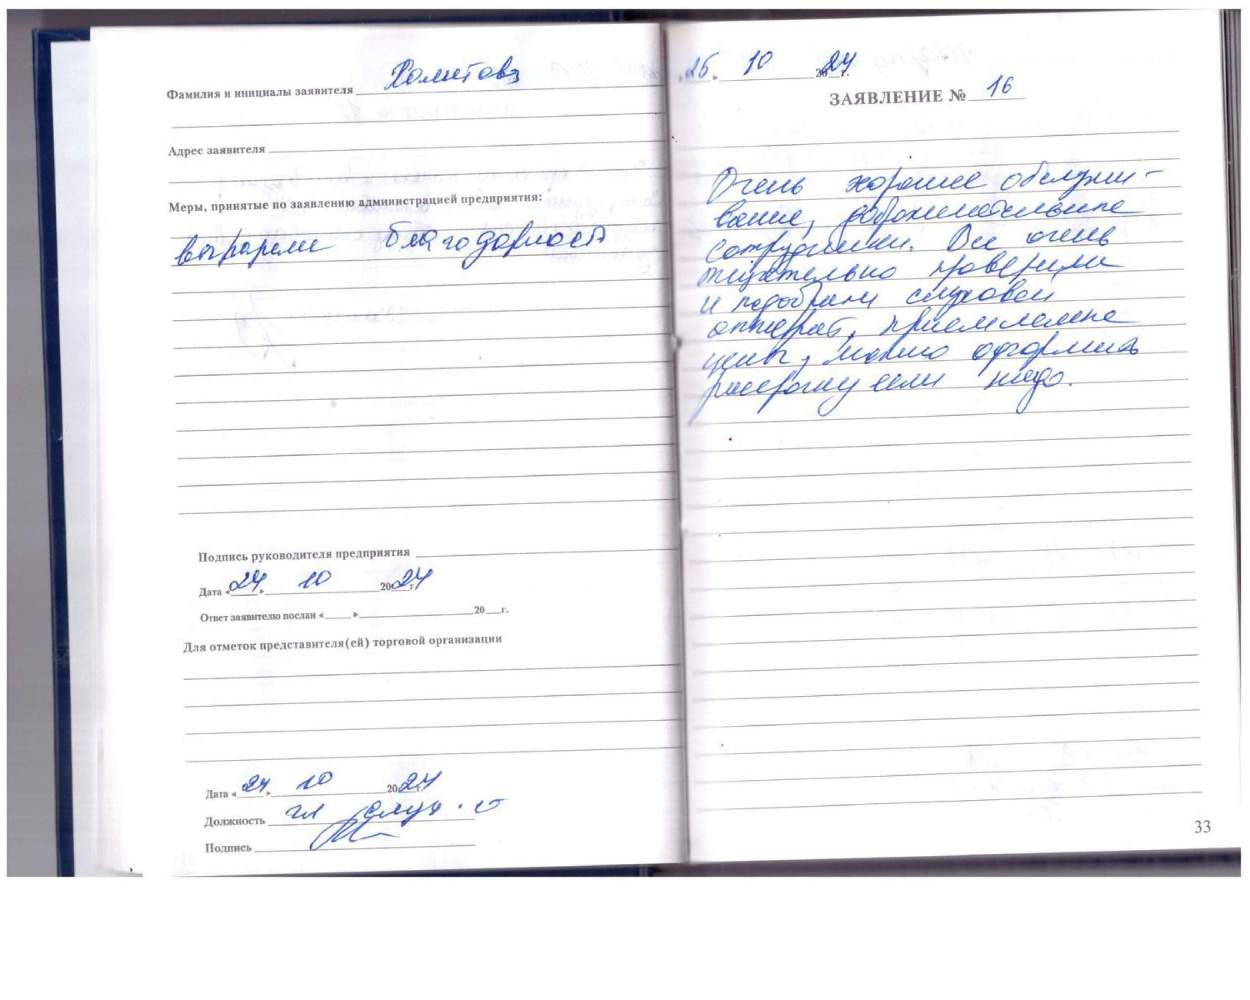 Фамилия и инициалы заявителя Хаметова
Адрес заявителя
Меры, принятые по заявлению администрацией предприятия:
выразили благодарность
Подпись руководителя предприятия
Дата «24» 10 2024 г.
Ответ заявителю послан « » 20 г.
Для отметок представителя(ей) торговой организации
Дата «24» 10 2024 г.
Должность гл
Подпись
«25» 10 2024 г.
ЗАЯВЛЕНИЕ № 16
Очень хорошее обслужи-
вание, доброжелательные
сотрудники. Все очень
тщательно проверили
и подобрали слуховой
аппарат, приемлемые
цены, можно оформить
рассрочку если надо.
33